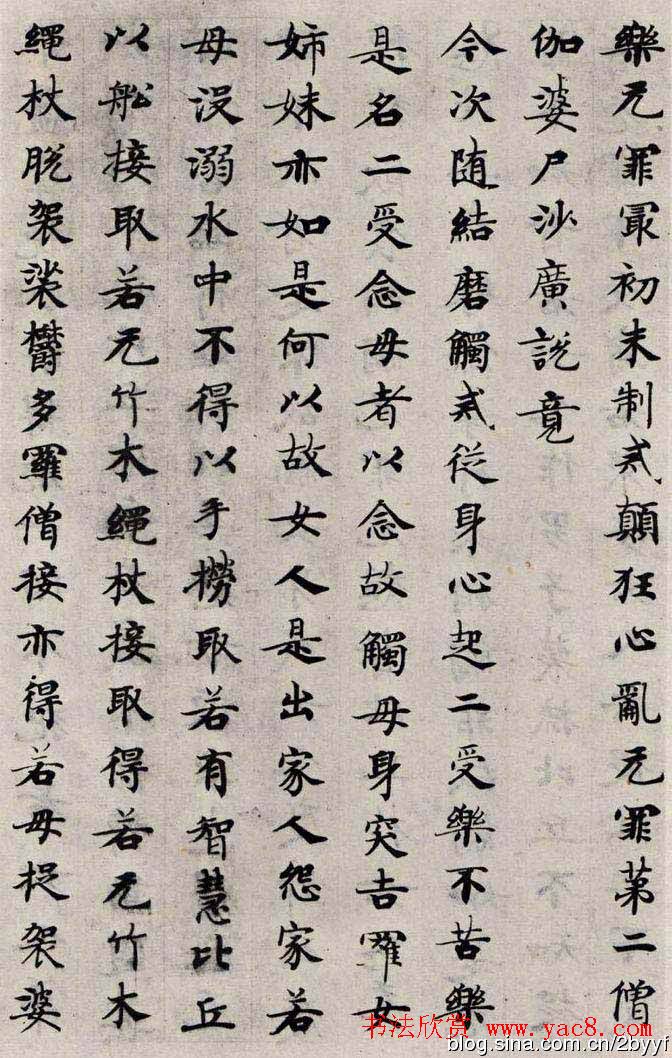 樂无罪冣初未制貳顛狂心亂无罪第二僧
伽婆尸沙廣說竟
今次随結磨觸貳從身心起二受樂不苦樂
是名二受念母者以念故觸母身突吉羅女
姉妹亦如是何以故女人是出家人怨家若
母没溺水中不得以手撈取若有智慧比丘
以舩接取若无竹木繩杖接取得若无竹木
繩杖脱袈裟欝多羅僧接亦得若母捉袈婆
书法欣赏 www.yac8.com
blog.sina.com.cn/2byyf